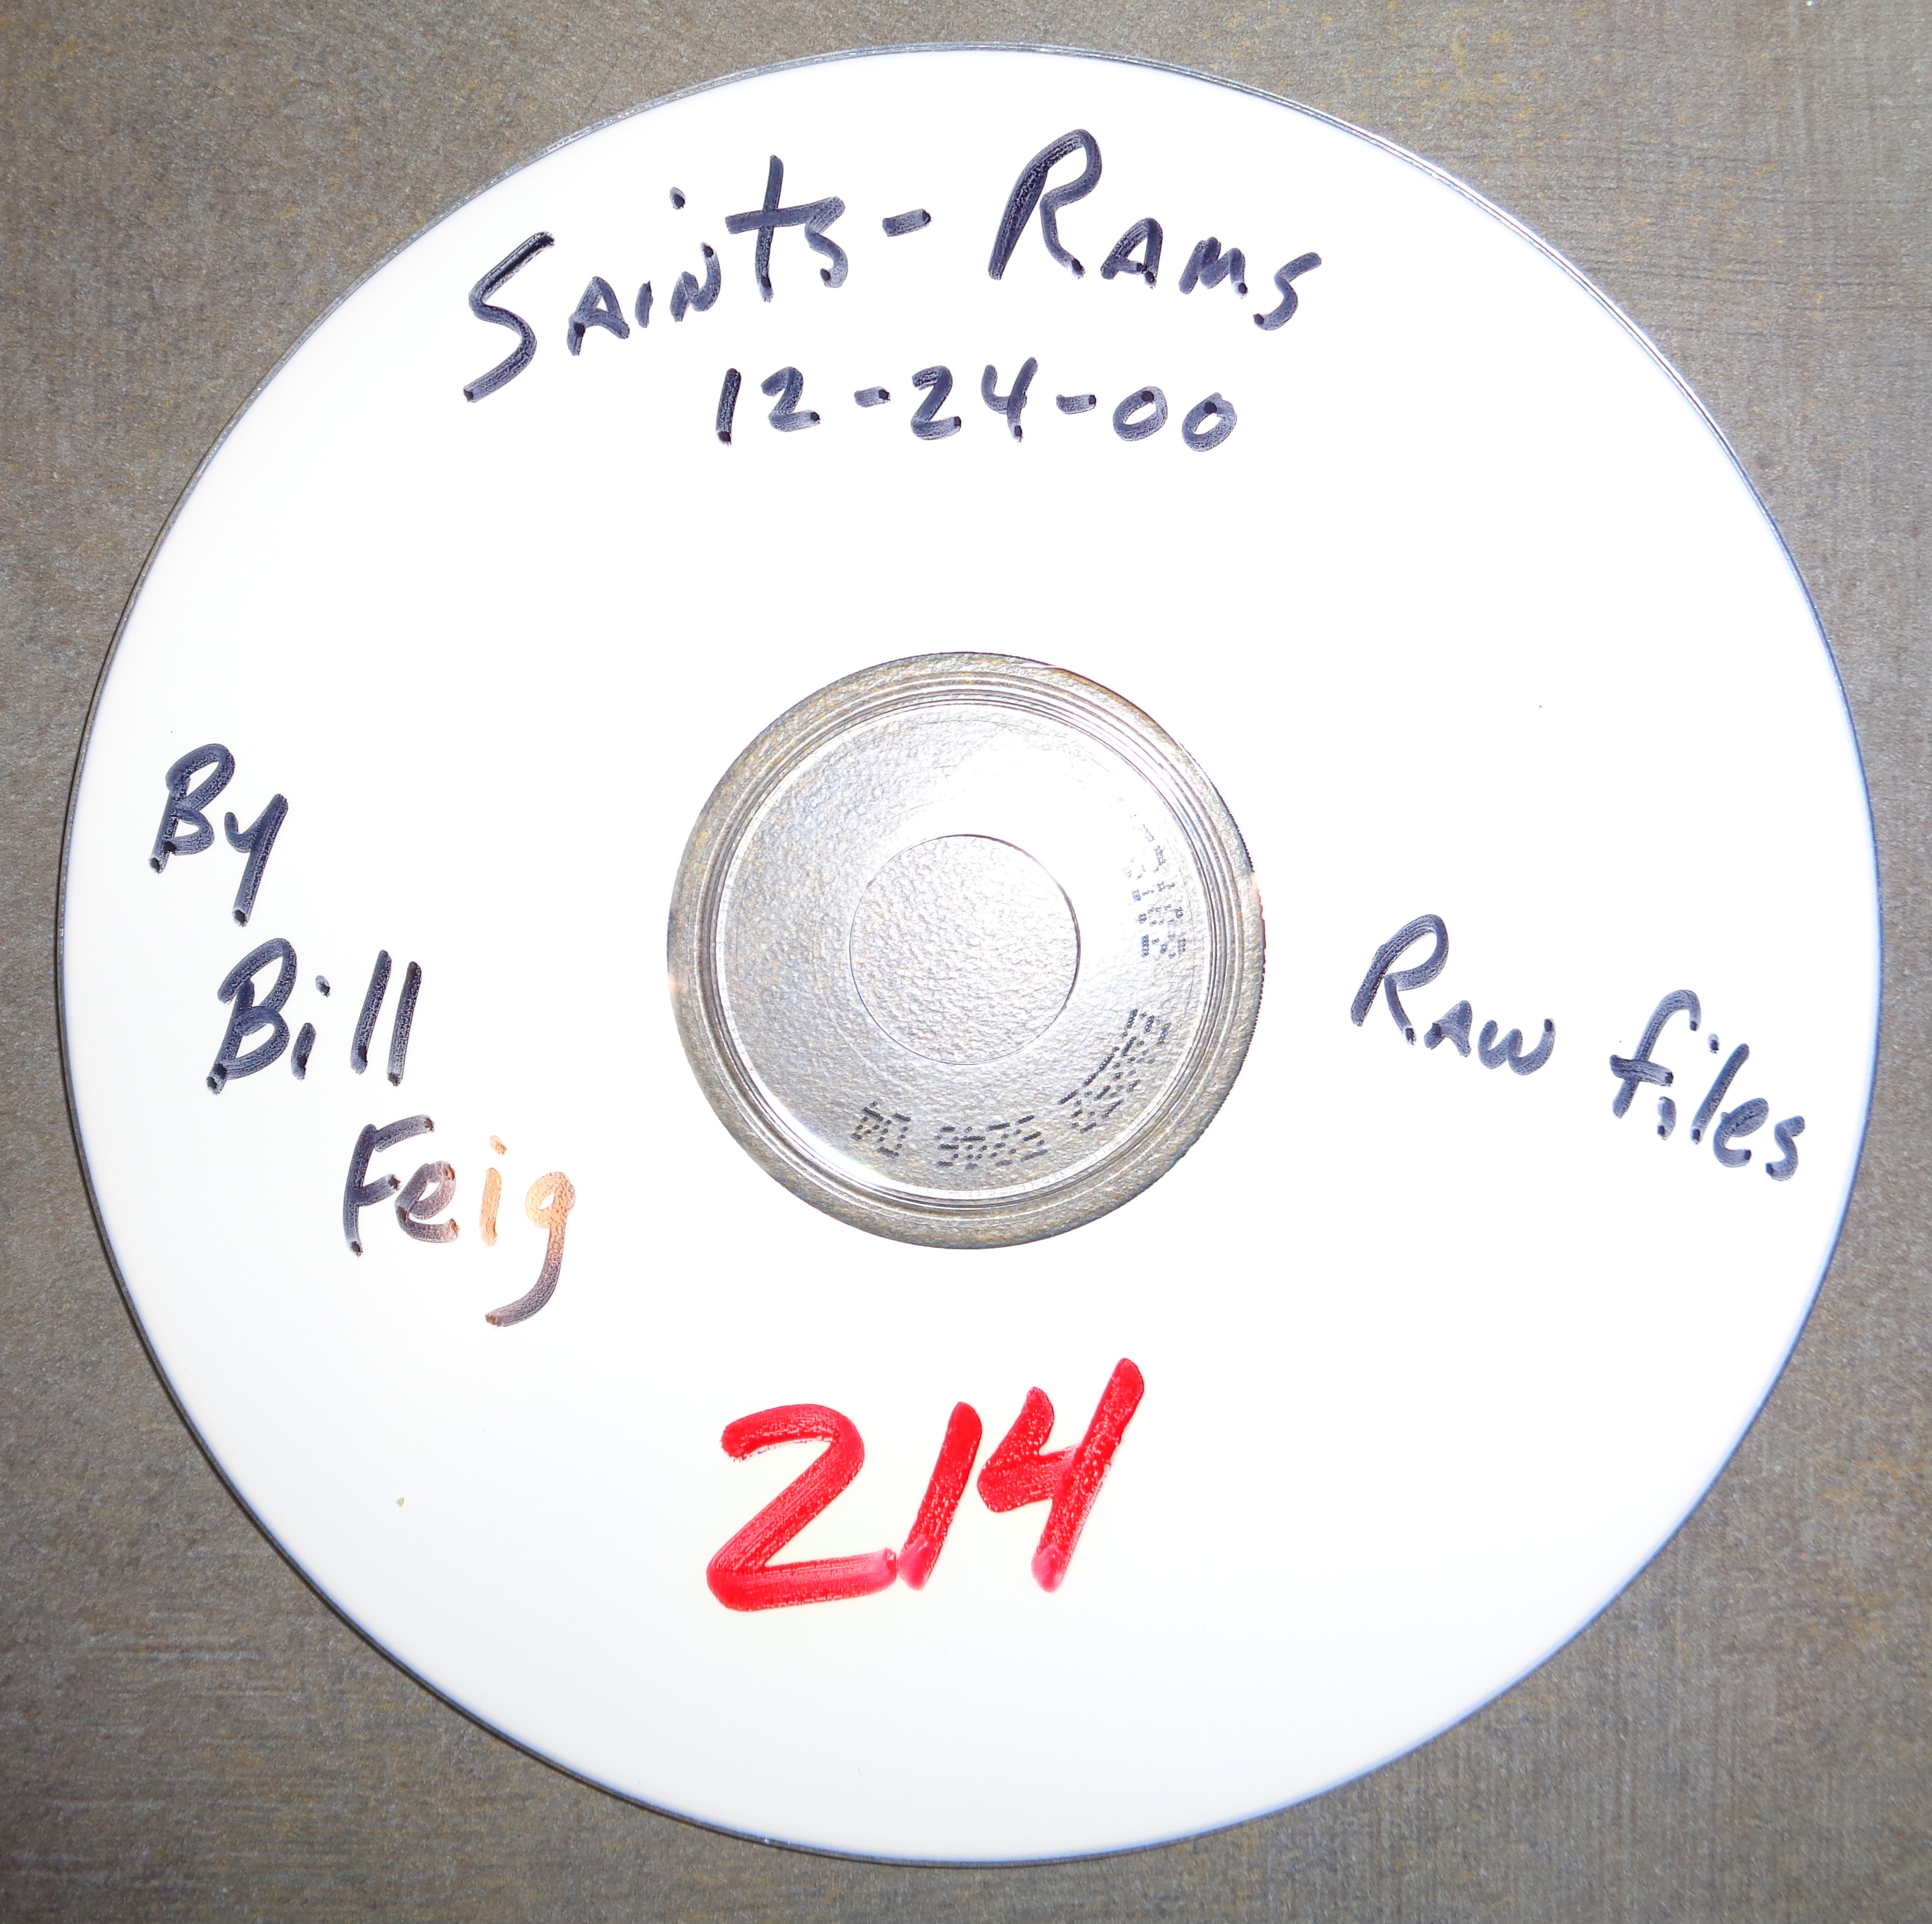 Saints - Rams
12-24-00
By
Bill
Feig
Raw files
214